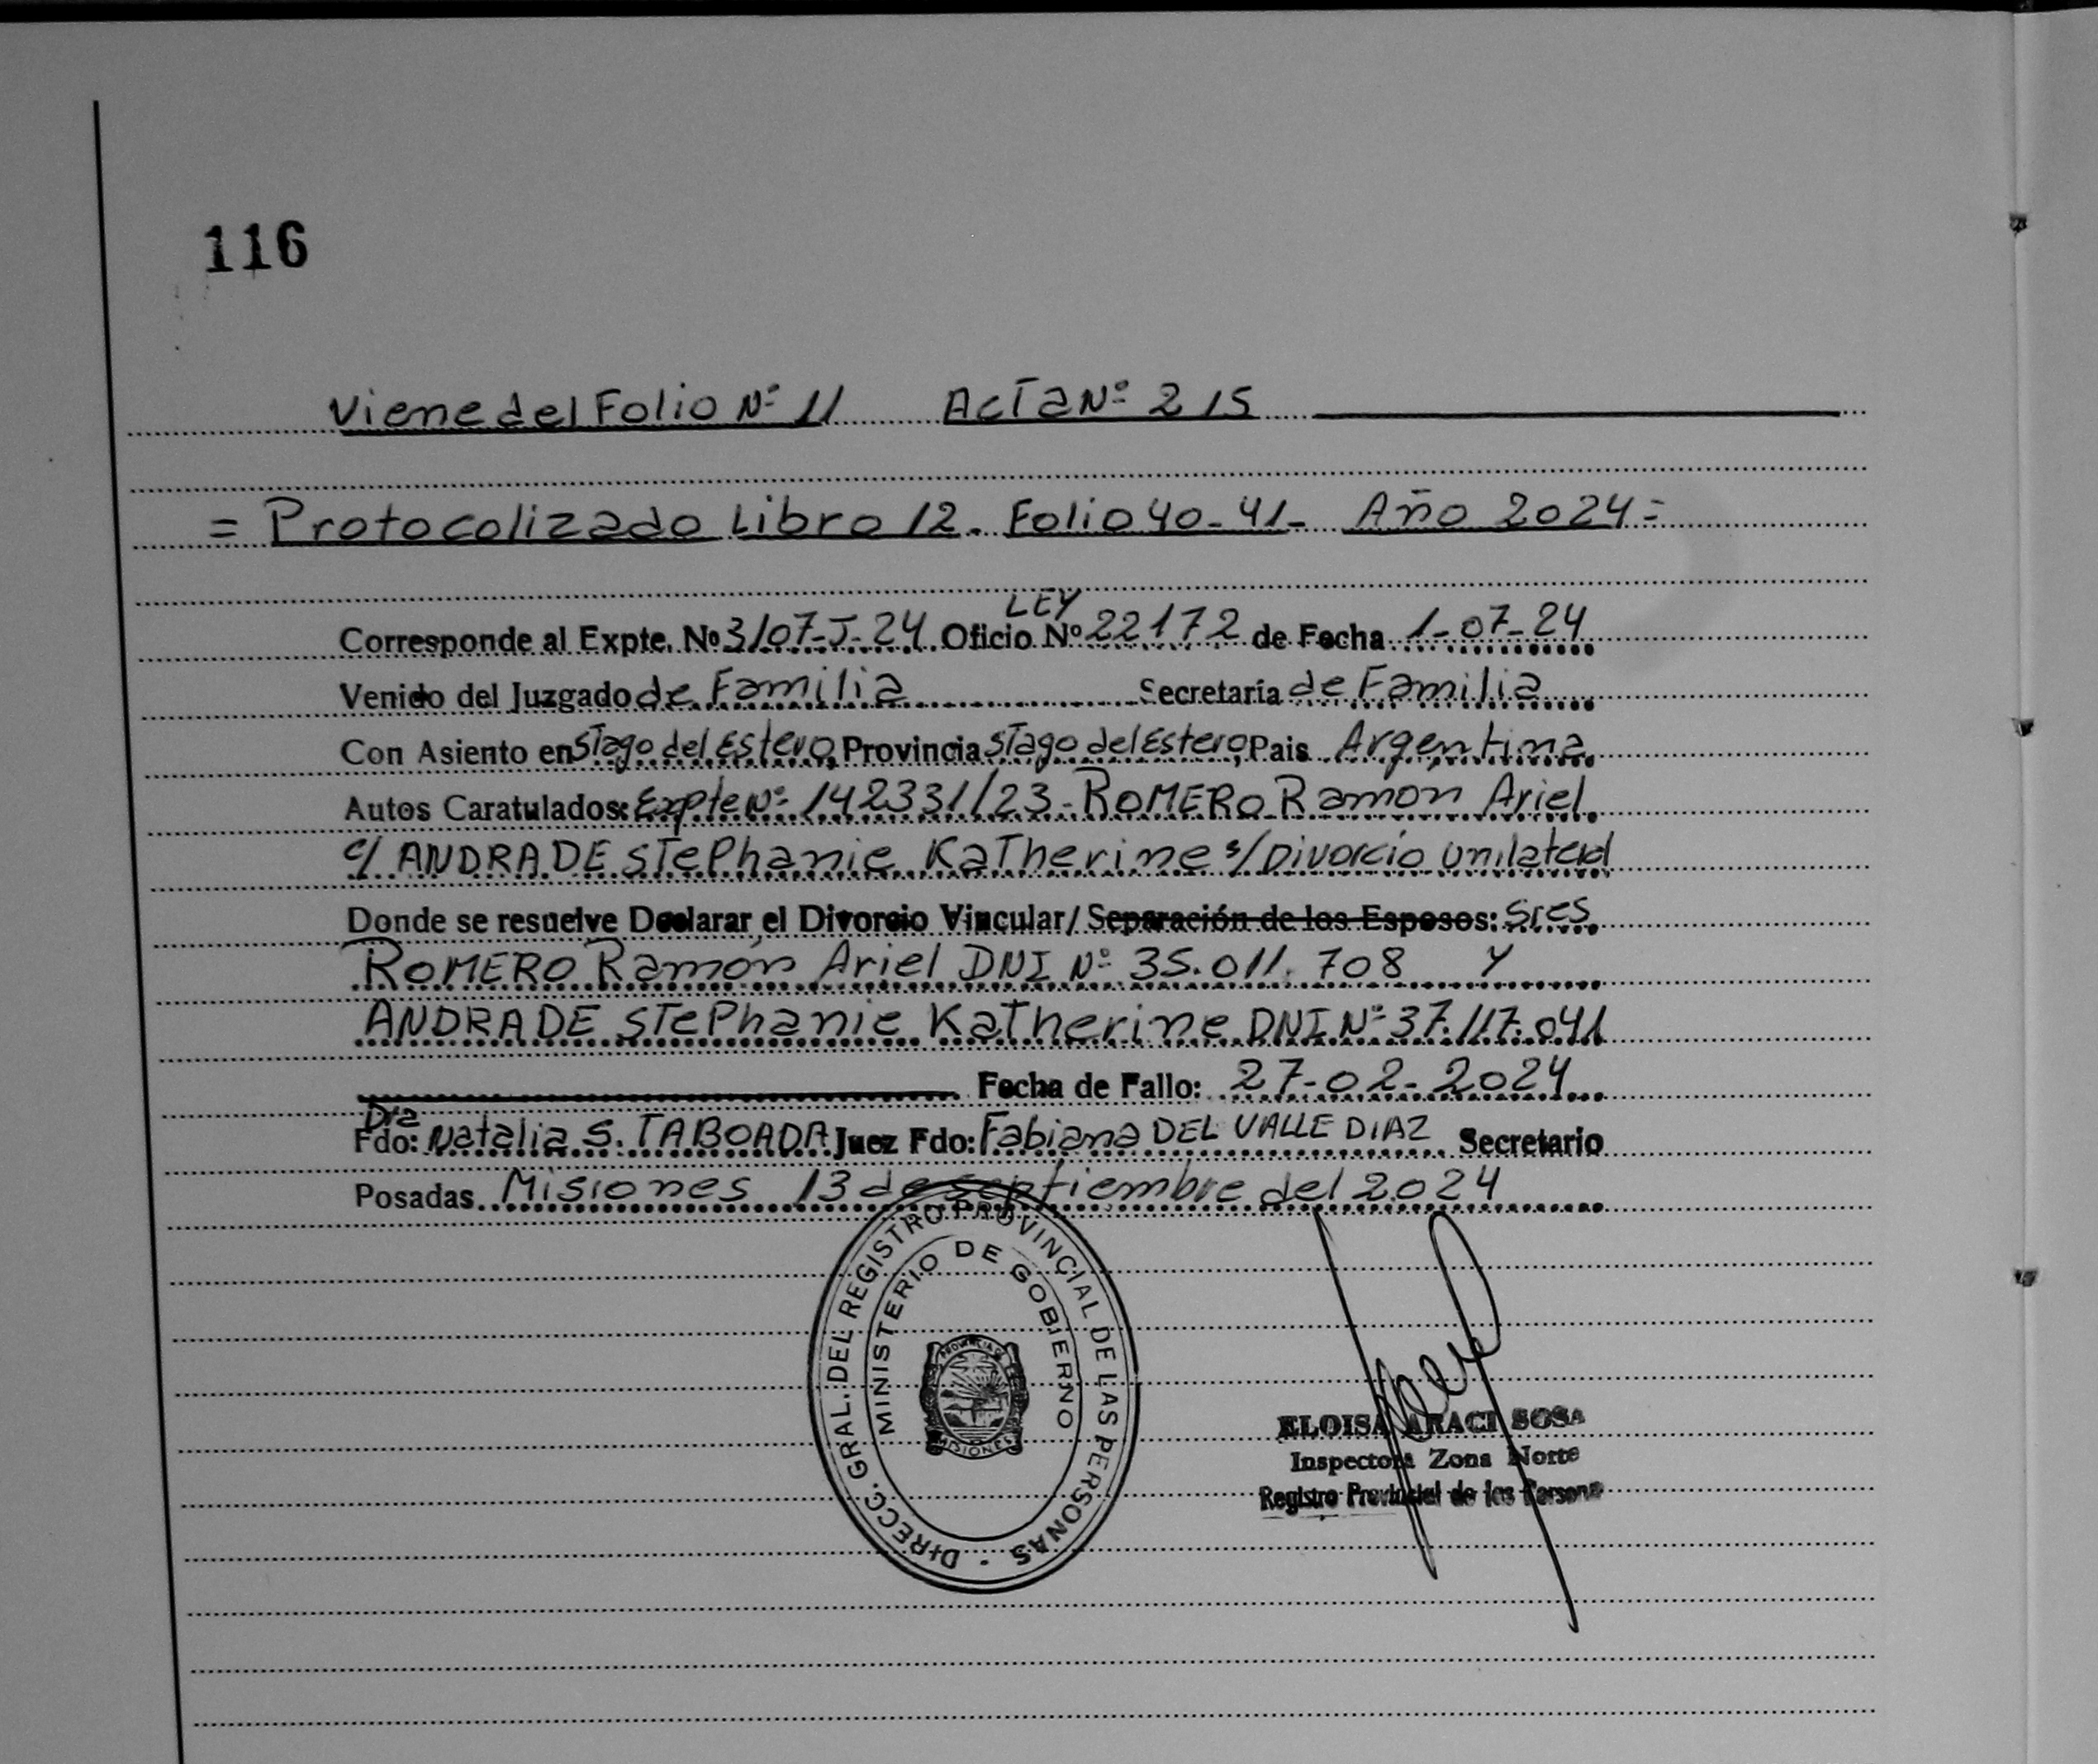 116
Viene del Folio Nº 11 Acta Nº 215
= Protocolizado Libro 12. Folio 40-41- Año 2024=
LEY
Corresponde al Expte. Nº 3107-J-24 Oficio Nº 22172 de Fecha 1-07-24
Venido del Juzgado de Familia Secretaría de Familia
Con Asiento en Stago del Estero, Provincia Stago del Estero, Pais Argentina
Autos Caratulados: Expte Nº 142331/23-ROMERO Ramon Ariel
c/ ANDRADE Stephanie Katherine s/ Divorcio Unilateral
Donde se resuelve Declarar el Divorcio Vincular/ Separación de los Esposos: Sres
ROMERO Ramón Ariel DNI Nº 35.011.708 Y
ANDRADE Stephanie Katherine DNI Nº 37.117.041
Fecha de Fallo: 27-02-2024
Dra
Fdo: Natalia S. TABOADA Juez Fdo: Fabiana DEL VALLE DIAZ Secretario
Posadas Misiones 13 de septiembre del 2024
DIRECC. GRAL. DEL REGISTRO PROVINCIAL DE LAS PERSONAS
MINISTERIO DE GOBIERNO
PROVINCIA DE
MISIONES
ELOISA ARACI SOSA
Inspectora Zona Norte
Registro Provincial de las Persona